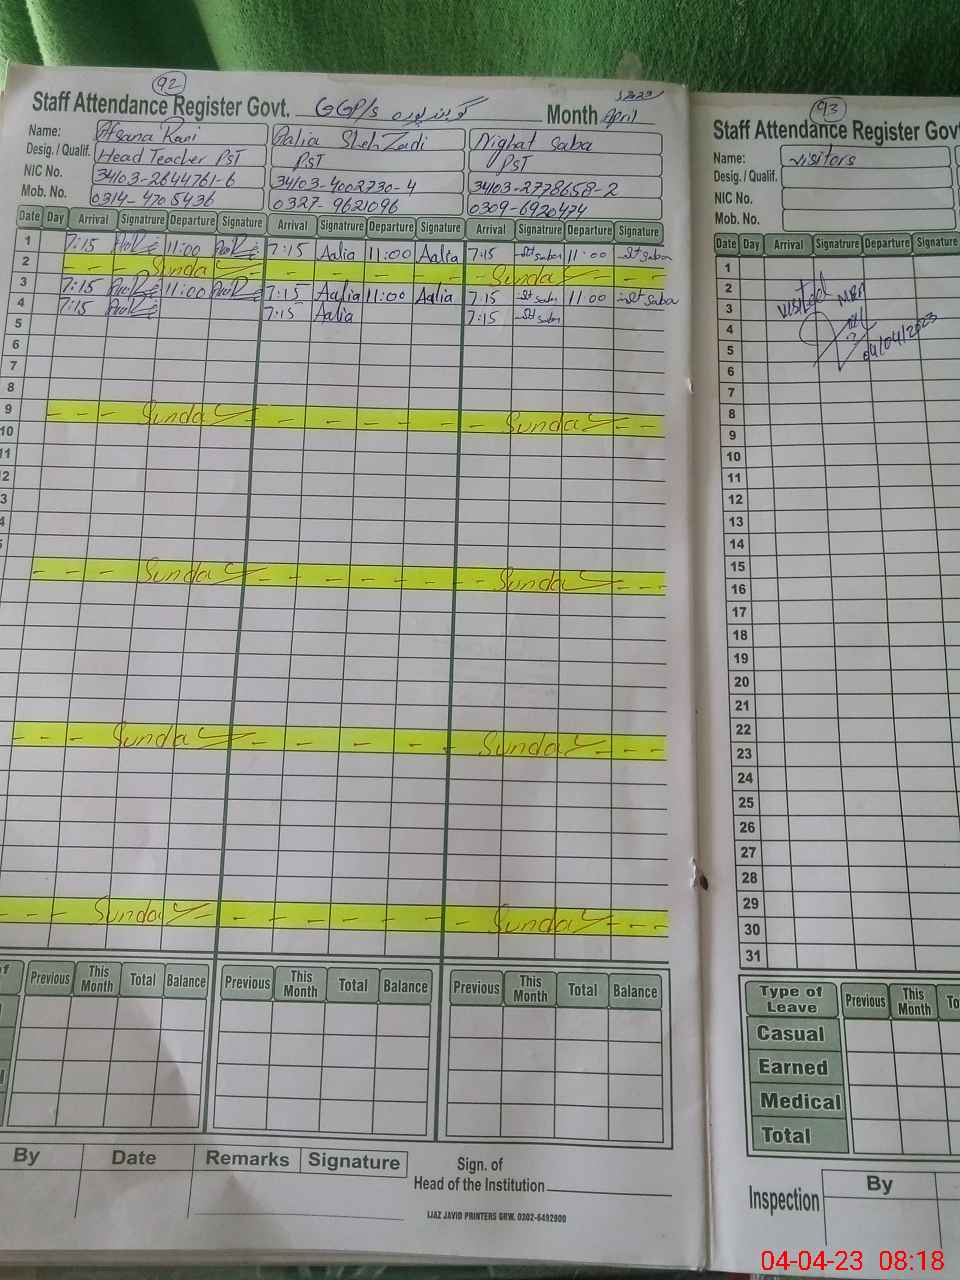 92
Staff Attendance Register Govt. GGP/s گوبندپورہ Month April 2023
Name: Afsana Rani Aalia Sheh Zadi Nighat Saba
Desig. / Qualif. Head Teacher PST PST PST
NIC No. 34103-2644761-6 34103-4002730-4 34103-2778658-2
Mob. No. 0314-4705436 0327-9621096 0309-6920474
Date Day Arrival Signatrure Departure Signature Arrival Signatrure Departure Signature Arrival Signatrure Departure Signature
1 7:15 11:00 7:15 Aalia 11:00 Aalia 7:15 Saba 11:00 Saba
2 Sunday Sunday
3 7:15 11:00 7:15 Aalia 11:00 Aalia 7:15 Saba 11:00 Saba
4 7:15 7:15 Aalia 7:15 Saba
5
6
7
8
9 Sunday Sunday
10
11
12
13
Sunday Sunday
Sunday Sunday
Sunday Sunday
Previous This Month Total Balance Previous This Month Total Balance Previous This Month Total Balance
By Date Remarks Signature Sign. of
Head of the Institution
IJAZ JAVID PRINTERS GRW. 0302-6492900
93
Staff Attendance Register Govt
Name: Visitors
Desig. / Qualif.
NIC No.
Mob. No.
Date Day Arrival Signatrure Departure Signature
1
2 Visited
3
4
5 04/04/2023
6
7
8
9
10
11
12
13
14
15
16
17
18
19
20
21
22
23
24
25
26
27
28
29
30
31
Type of Leave Previous This Month
Casual
Earned
Medical
Total
Inspection By
04-04-23 08:18